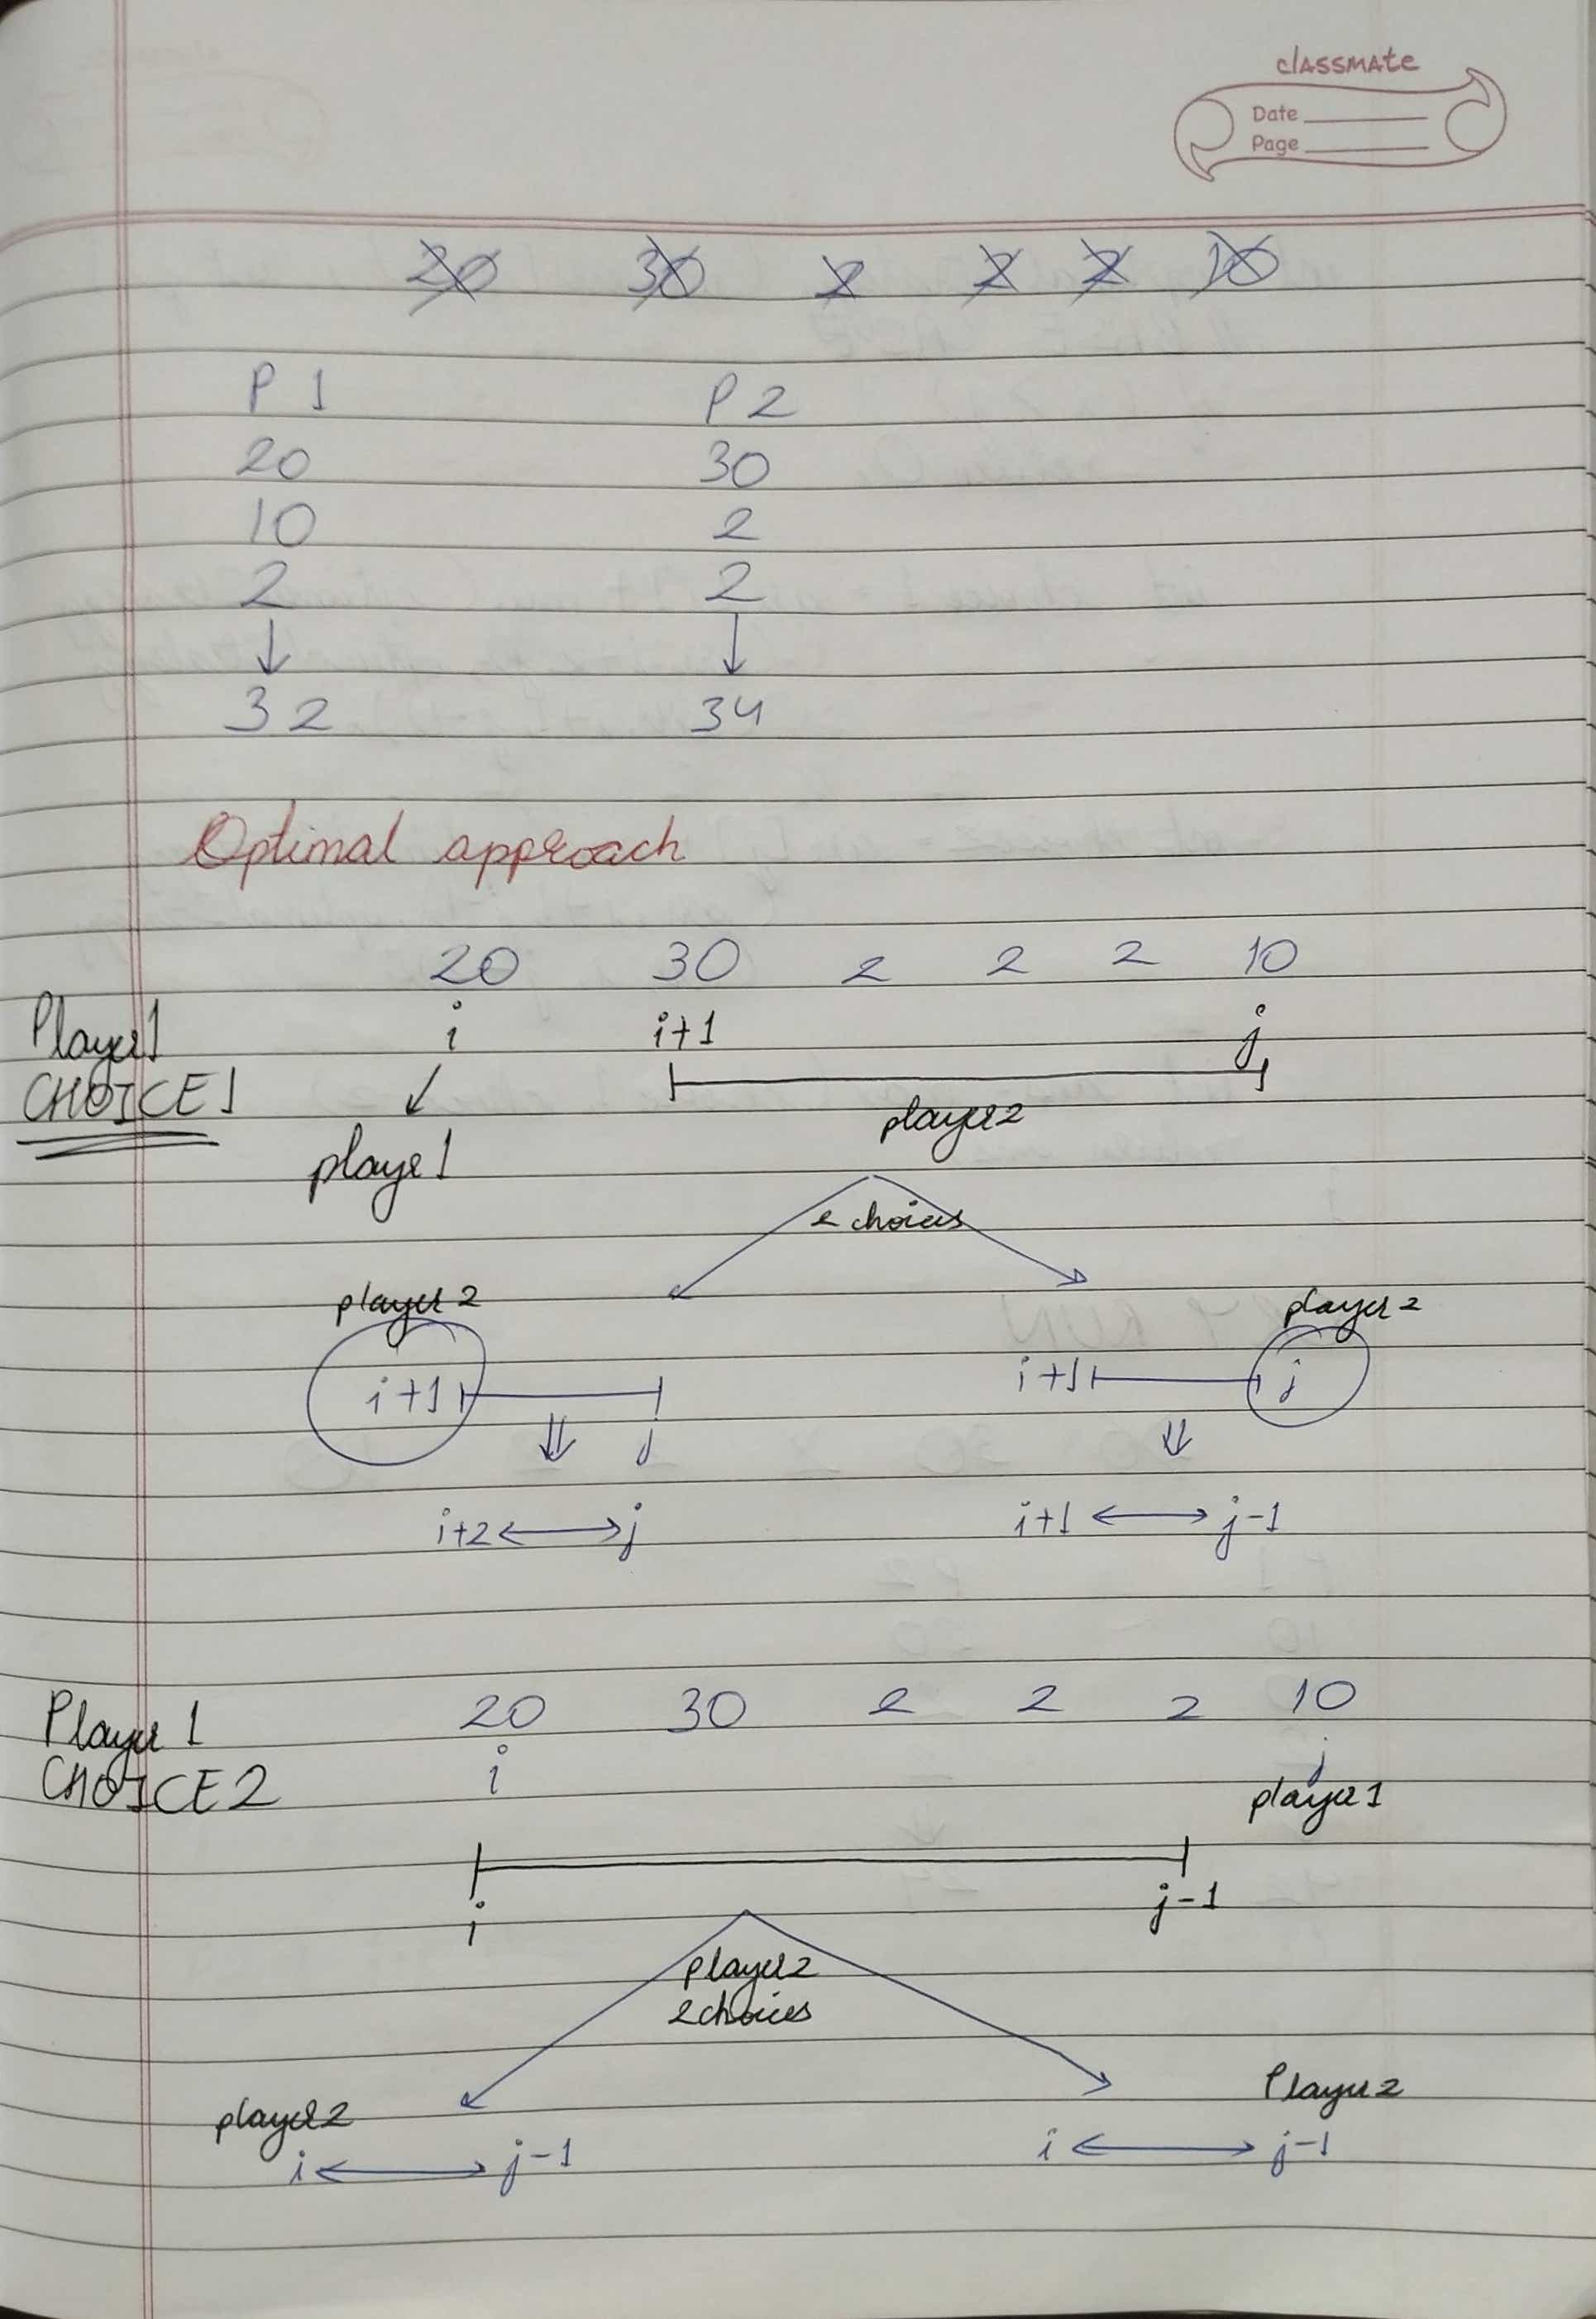 classmate
Date
Page
20 30 2 2 2 10
P 1 P 2
20 30
10 2
2 2
↓ ↓
32 34
Optimal approach
20 30 2 2 2 10
Player1 i i+1 j
CHOICE1
player2
playe1
2 choices
player2 player2
i+1 j i+1 j
i+2 ↔ j i+1 ↔ j-1
Player 1 20 30 2 2 2 10
CHOICE2 i j
player1
i j-1
player2
2choices
player2 Player2
i ↔ j-1 i ↔ j-1